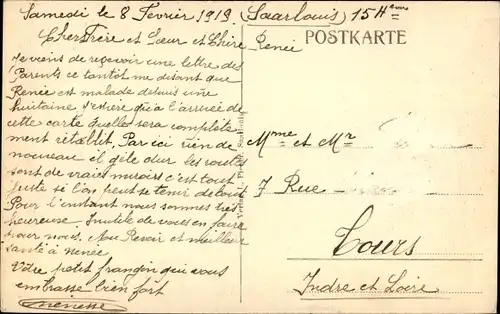 Samedi le 8 Fevrier 1919 (Saarlouis) 15 Heures
POSTKARTE
Chers Frère et Sœur et Chère Renée
Je viens de reçevoir une lettre des
Parents ce tantôt me disant que
Renée est malade depuis une
huitaine j'espère qu'a l'arrivée de
cette carte quelle sera complète
ment rétablit. Par ici rien de
nouveau il gèle dur les routes
sont de vraies miroirs c'est tout
juste si l'on peut se tenir debout
Pour l'instant nous sommes très
heureuse. Inutile de vous en faire
pour nous. Au Revoir et meilleur
santé à Renée
Vôtre petit frangin qui vous
embrasse bien fort
Mme et Mr
7 Rue
Tours
Indre et Loire